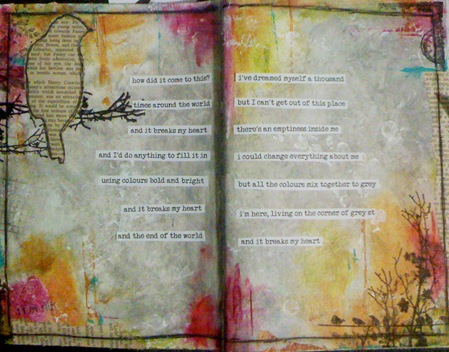 how did it come to this?
i've dreamed myself a thousand
times around the world
but I can't get out of this place
and it breaks my heart
there's an emptiness inside me
and I'd do anything to fill it in
i could change everything about me
using colours bold and bright
but all the colours mix together to grey
and it breaks my heart
i'm here, living on the corner of grey st
and the end of the world
and it breaks my heart